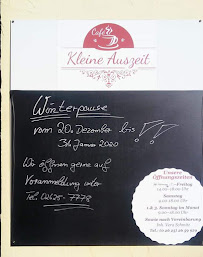 Café
Kleine Auszeit
Winterpause
vom 20. Dezember bis !!
31. Januar 2020
Wir öffnen gerne auf
Voranmeldung unter
Tel. 02628- 7778
Unsere
Öffnungszeiten
-Freitag
Samstag
1. & 3. Sonntag im Monat